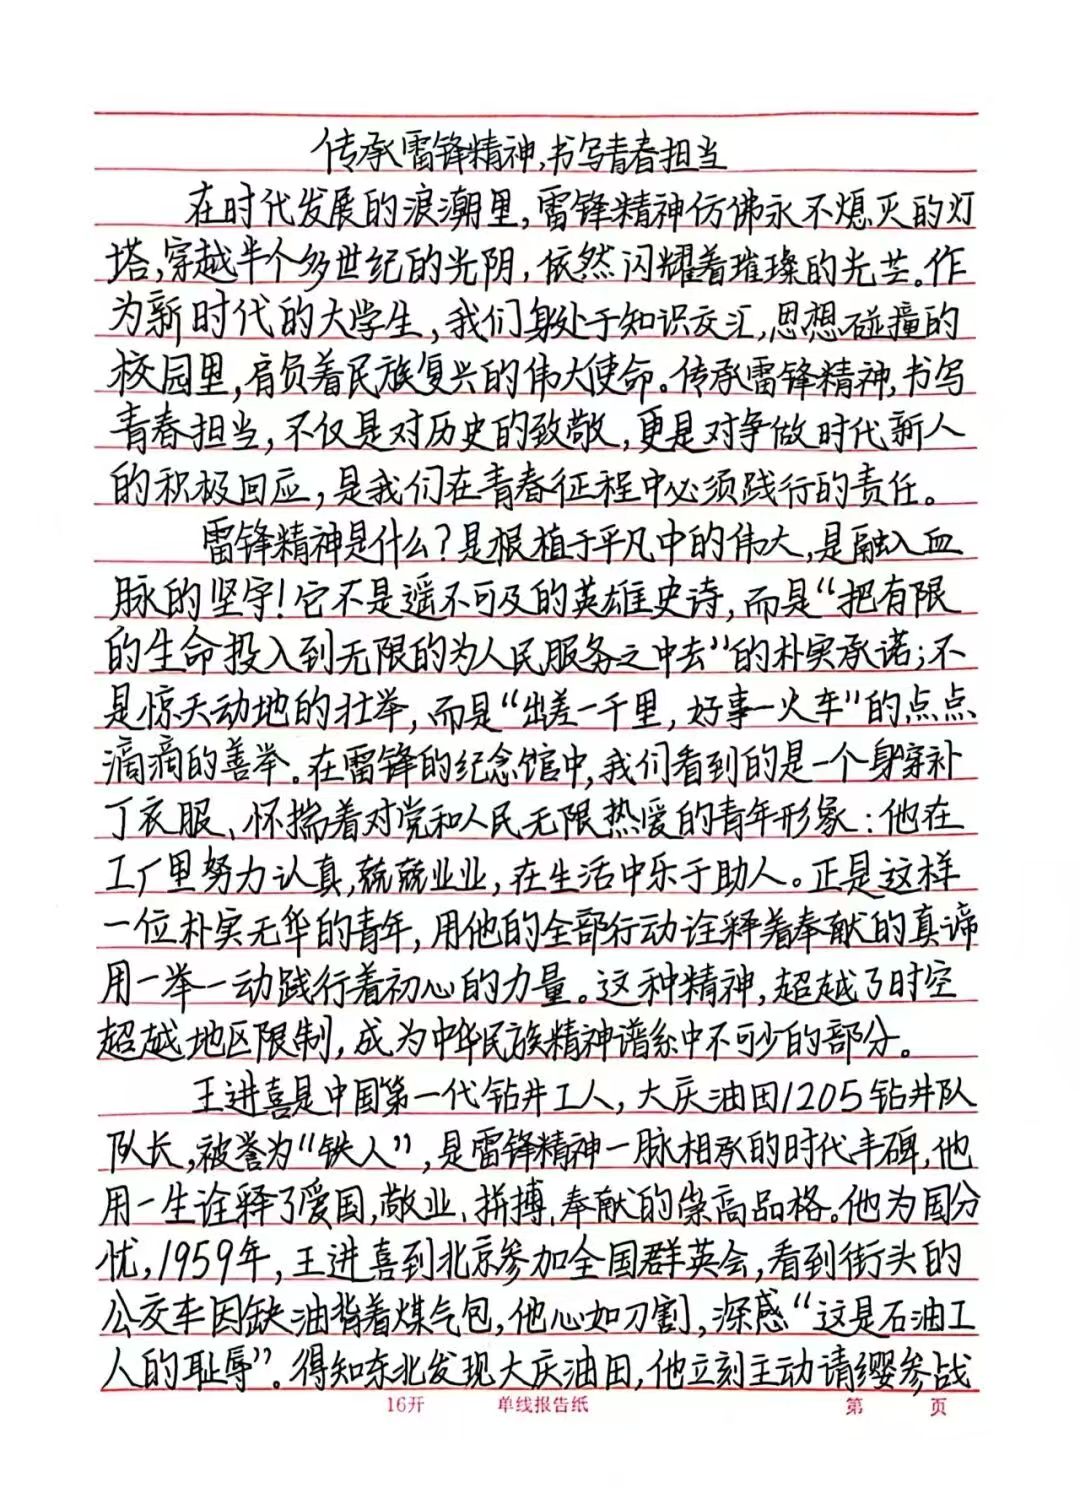 传承雷锋精神,书写青春担当
在时代发展的浪潮里,雷锋精神仿佛永不熄灭的灯
塔,穿越半个多世纪的光阴,依然闪耀着璀璨的光芒。作
为新时代的大学生,我们身处于知识交汇,思想碰撞的
校园里,肩负着民族复兴的伟大使命。传承雷锋精神,书写
青春担当,不仅是对历史的致敬,更是对争做时代新人
的积极回应,是我们在青春征程中必须践行的责任。
雷锋精神是什么?是根植于平凡中的伟大,是融入血
脉的坚守!它不是遥不可及的英雄史诗,而是“把有限
的生命投入到无限的为人民服务之中去”的朴实承诺;不
是惊天动地的壮举,而是“出差一千里,好事一火车”的点点
滴滴的善举。在雷锋的纪念馆中,我们看到的是一个身穿补
丁衣服、怀揣着对党和人民无限热爱的青年形象:他在
工厂里努力认真,兢兢业业,在生活中乐于助人。正是这样
一位朴实无华的青年,用他的全部行动诠释着奉献的真谛
用一举一动践行着初心的力量。这种精神,超越了时空
超越地区限制,成为中华民族精神谱系中不可少的部分。
王进喜是中国第一代钻井工人,大庆油田1205钻井队
队长,被誉为“铁人”,是雷锋精神一脉相承的时代丰碑,他
用一生诠释了爱国,敬业、拼搏、奉献的崇高品格。他为国分
忧,1959年,王进喜到北京参加全国群英会,看到街头的
公交车因缺油背着煤气包,他心如刀割,深感“这是石油工
人的耻辱”。得知东北发现大庆油田,他立刻主动请缨参战
16开 单线报告纸 第 页